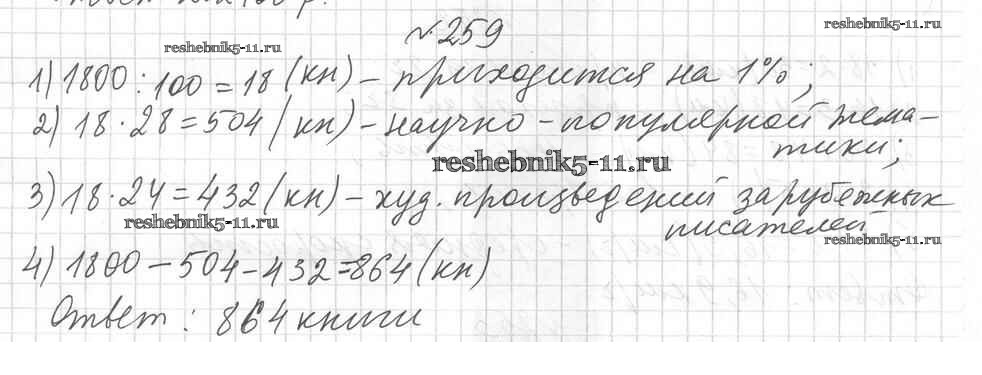 №259
1) 1800 : 100 = 18 (кн) – приходится на 1%;
2) 18 · 28 = 504 (кн) – научно – популярной тема–
тики;
3) 18 · 24 = 432 (кн) – худ. произведений зарубежных
писателей
4) 1800 – 504 – 432 = 864 (кн)
Ответ : 864 книги
reshebnik5-11.ru
reshebnik5-11.ru
reshebnik5-11.ru
reshebnik5-11.ru
reshebnik5-11.ru